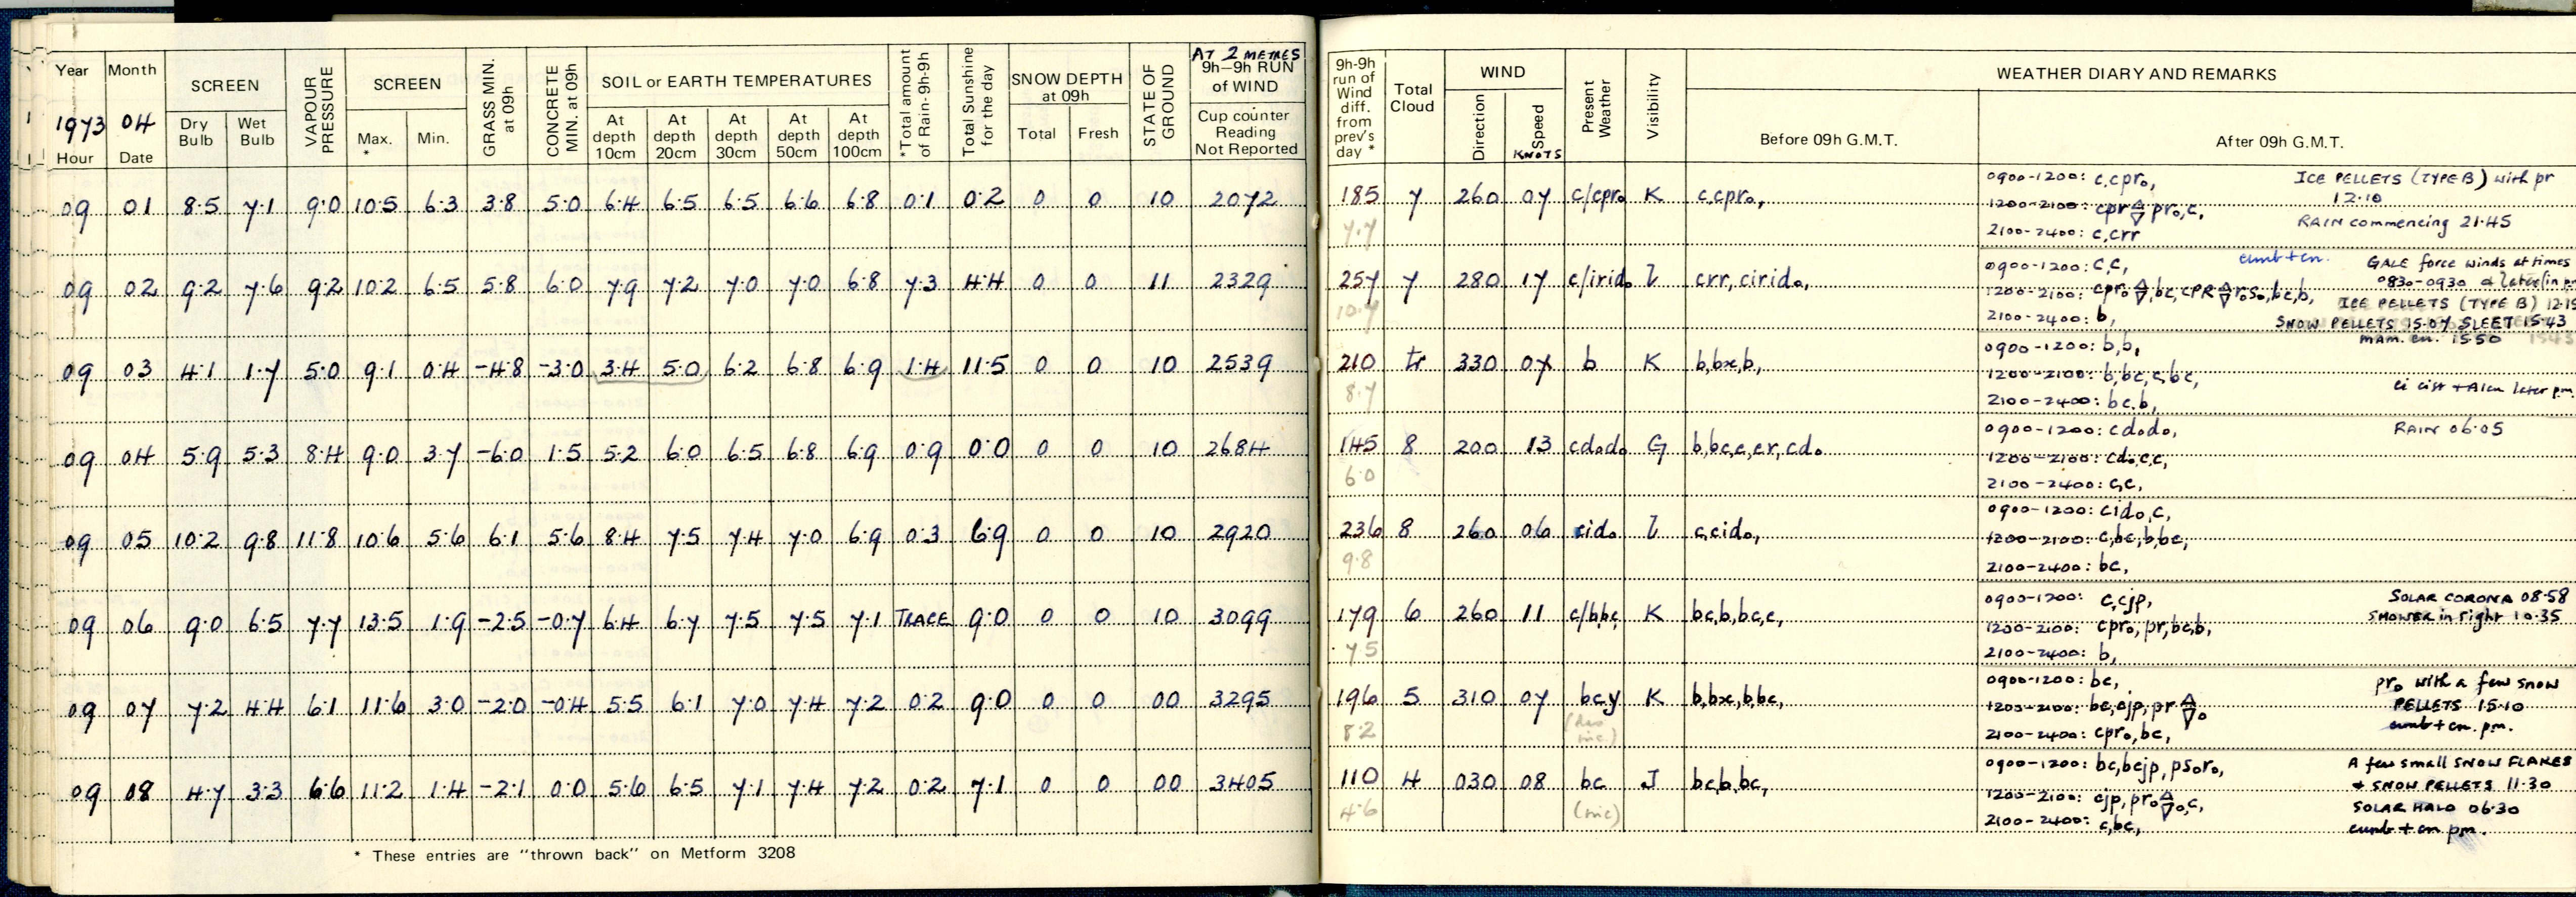 Year Month SCREEN VAPOUR PRESSURE SCREEN GRASS MIN. at 09h CONCRETE MIN. at 09h SOIL or EARTH TEMPERATURES *Total amount of Rain-9h-9h Total Sunshine for the day SNOW DEPTH at 09h STATE OF GROUND AT 2 METRES 9h–9h RUN of WIND
1973 04 Dry Bulb Wet Bulb Max. * Min. At depth 10cm At depth 20cm At depth 30cm At depth 50cm At depth 100cm Total Fresh Cup counter Reading Not Reported
Hour Date
09 01 8.5 7.1 9.0 10.5 6.3 3.8 5.0 6.4 6.5 6.5 6.6 6.8 0.1 0.2 0 0 10 2072
09 02 9.2 7.6 9.2 10.2 6.5 5.8 6.0 7.9 7.2 7.0 7.0 6.8 7.3 4.4 0 0 11 2329
09 03 4.1 1.7 5.0 9.1 0.4 -4.8 -3.0 3.4 5.0 6.2 6.8 6.9 1.4 11.5 0 0 10 2539
09 04 5.9 5.3 8.4 9.0 3.7 -6.0 1.5 5.2 6.0 6.5 6.8 6.9 0.9 0.0 0 0 10 2684
09 05 10.2 9.8 11.8 10.6 5.6 6.1 5.6 8.4 7.5 7.4 7.0 6.9 0.3 6.9 0 0 10 2920
09 06 9.0 6.5 7.7 13.5 1.9 -2.5 -0.7 6.4 6.7 7.5 7.5 7.1 TRACE 9.0 0 0 10 3099
09 07 7.2 4.4 6.1 11.6 3.0 -2.0 -0.4 5.5 6.1 7.0 7.4 7.2 0.2 9.0 0 0 00 3295
09 08 4.7 3.3 6.6 11.2 1.4 -2.1 0.0 5.6 6.5 7.1 7.4 7.2 0.2 7.1 0 0 00 3405
* These entries are "thrown back" on Metform 3208
9h-9h run of Wind diff. from prev's day * Total Cloud WIND Direction Speed KNOTS Present Weather Visibility WEATHER DIARY AND REMARKS
Before 09h G.M.T. After 09h G.M.T.
0900-1200: c,cpr₀, ICE PELLETS (TYPE B) with pr
185 7 260 07 c/cpr₀ K c,cpr₀, 12.10
7.7 1200-2100: cpr pr₀,c, RAIN commencing 21.45
2100-2400: c,crr
0900-1200: c,c, cumb+cn. GALE force winds at times
257 7 280 17 c/irid₀ crr, cirid₀, 0830-0930 & later
10.7 1200-2100: cpr₀ ,bc,cPR r₀s₀,bc,b, ICE PELLETS (TYPE B)
2100-2400: b, SNOW PELLETS 15.07 SLEET 15.43
0900-1200: b,b, mam. cu. 15.50
210 tr 330 07 b K b,bx,b,
8.7 1200-2100: b,bc,c,bc, ci cist + Alcu later pm.
2100-2400: bc,b,
0900-1200: cd₀d₀, RAIN 06.05
145 8 200 13 cd₀d₀ G b,bc,c,cr,cd₀
6.0 1200-2100: cd₀,c,c,
2100-2400: c,c,
0900-1200: cid₀,c,
236 8 260 06 cid₀ c,cid₀,
9.8 1200-2100: c,bc,b,bc,
2100-2400: bc,
0900-1200: c,cjp, SOLAR CORONA 08.58
179 6 260 11 c/bbc K bc,b,bc,c, SHOWER in sight 10.35
7.5 1200-2100: cpr₀, pr,bc,b,
2100-2400: b,
0900-1200: bc, pr₀ with a few snow
196 5 310 07 bcy K b,bx,bbc, PELLETS 15.10
8.2 1200-2100: bc,cjp,pr cumb+cn. pm.
2100-2400: cpr₀,bc,
0900-1200: bc,bcjp,ps₀r₀, A few small SNOW FLAKES
110 4 030 08 bc J bc,b,bc, & SNOW PELLETS 11.30
4.6 1200-2100: cjp,pr₀ ,c, SOLAR HALO 06.30
2100-2400: c,bc, cumb + cn pm.